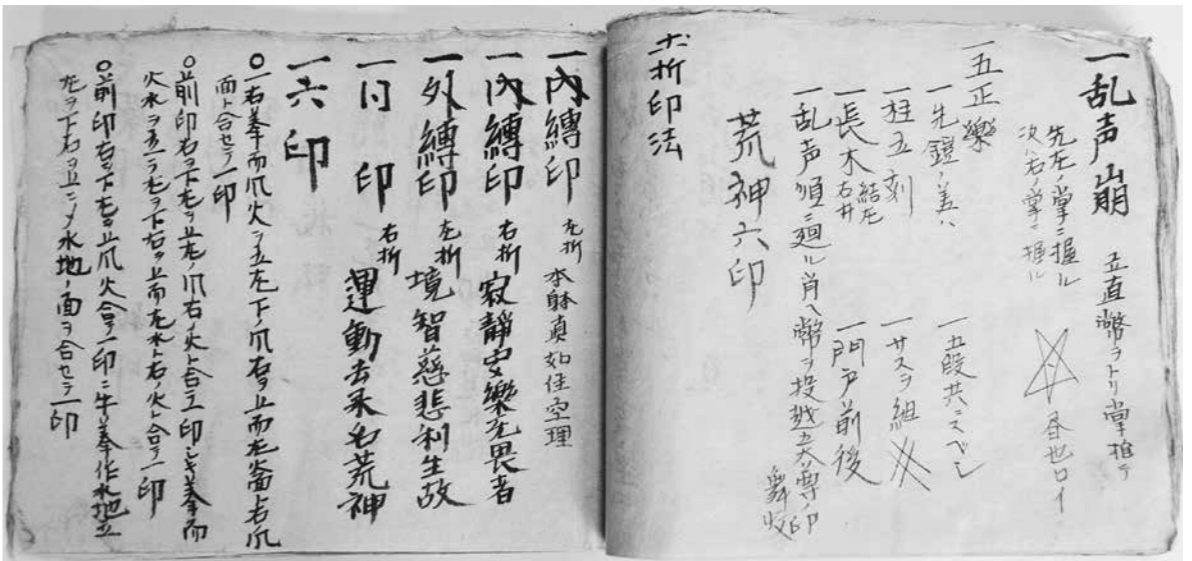 一乱声崩 立直幣ヲトリ掌推テ
先左ノ掌ニ握ル
次ハ右ノ掌ニ握ル
一五正樂
一先鐙ノ美ハ 一五段共ニスベシ
一柱五刻 一サスラ組
一長木 結左右井 一門戸前後
一乱声順ニ廻ル肖入幣ヲ投越五大尊ノ印
荒神六印
折印法
一内縛印 左折 本躰真如住空理
一内縛印 右折 寂静安樂无畏者
一外縛印 左折 境智慈悲利生故
一同印 右折 運動去来名荒神
一六印
○一右拳而爪火ヲ立左下ノ爪右ヲ立而左面ト右爪
面ト合セテ一印
○前印右ヲ下左ヲ立左ノ爪右ノ火ト合ニ一印
火水ヲ立テ左ヲ下右ヲ立而左水ト右ノ火ト合テ一印
○前印右ヲ下左ヲ立爪火合テ一印ニ牛拳作水地立
左ヲ下右ヲ立ニメ水地ノ面ヲ合セテ一印